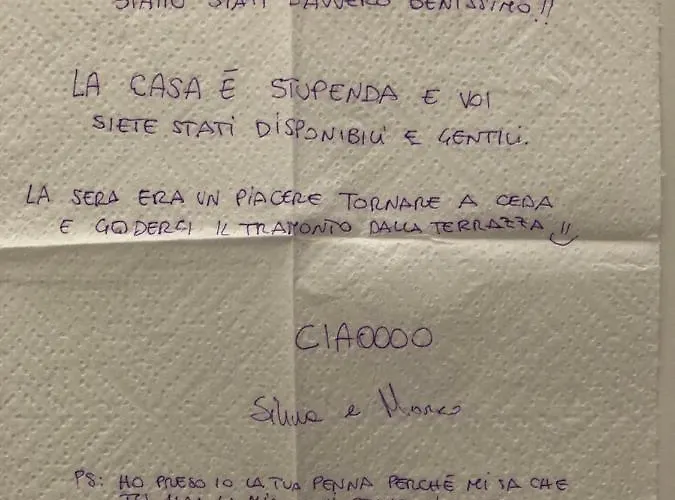 SIAMO STATI DAVVERO BENISSIMO!!
LA CASA È STUPENDA E VOI
SIETE STATI DISPONIBILI E GENTILI.
LA SERA ERA UN PIACERE TORNARE A CEDA
E GODERCI IL TRAMONTO DALLA TERRAZZA!!
CIAOOOO
Silvia e Marco
PS: HO PRESO IO LA TUA PENNA PERCHÉ MI SA CHE